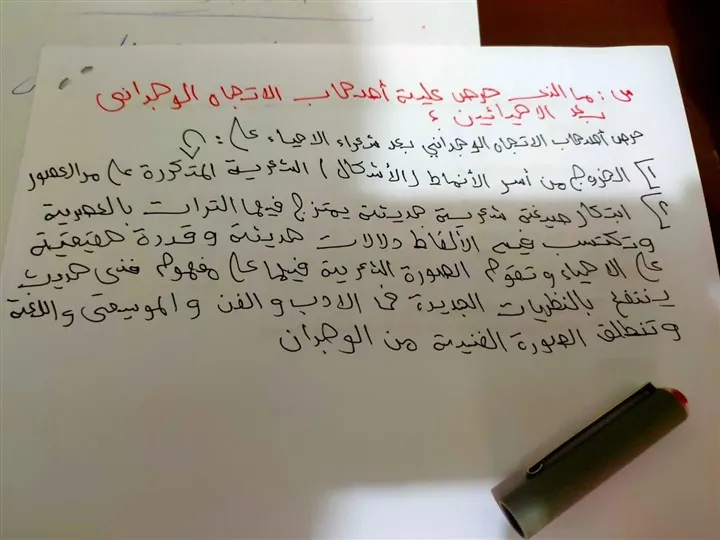 س: ما الذى حرص عليه أصحاب الاتجاه الوجدانى
بعد الاحيائين ؟
حرص أصحاب الاتجاه الوجدانى بعد شعراء الاحياء على :
1] الخروج من أسر الأنماط (الأشكال) الشعرية المتكررة على مر العصور
2] ابتكار صيغة شعرية حديثة يمتزج فيها التراث بالعصرية
وتكتسب فيه الألفاظ دلالات حديثة و قدرة حقيقية
على الاحياء و تقوم الصورة الشعرية فيها على مفهوم فنى حديث
ينتفع بالنظريات الجديدة فى الادب و الفن و الموسيقى و اللغة
و تنطلق الصورة الفنية من الوجدان